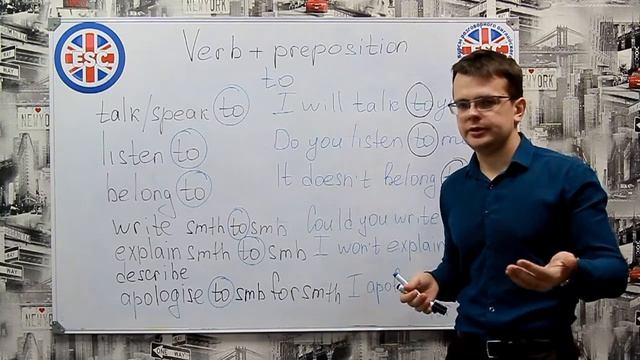 ESC
Verb + preposition
to
talk/speak to I will talk to
listen to Do you listen to
belong to It doesn't belong
write smth to smb Could you write
explain smth to smb I won't explain
describe
apologise to smb for smth I
NEW YORK
ONE WAY